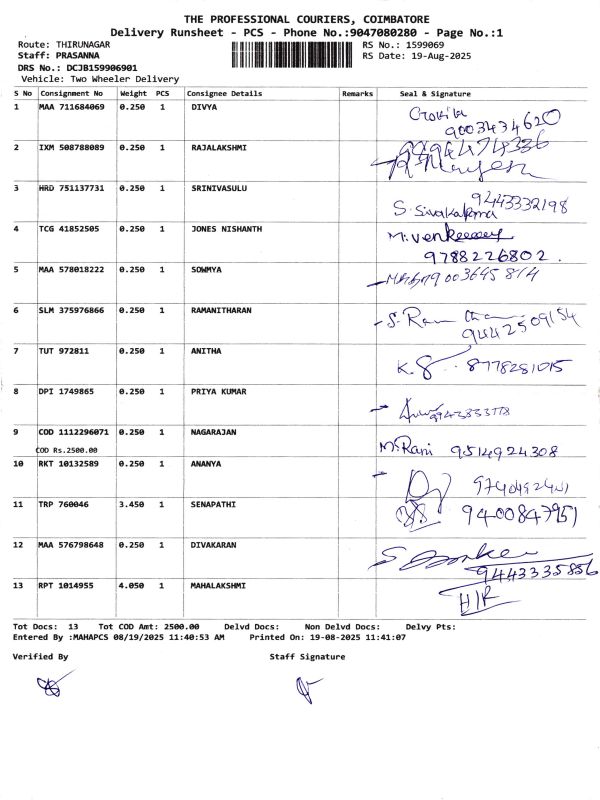 THE PROFESSIONAL COURIERS, COIMBATORE
Delivery Runsheet - PCS - Phone No.:9047080280 - Page No.:1
Route: THIRUNAGAR RS No.: 1599069
Staff: PRASANNA RS Date: 19-Aug-2025
DRS No.: DCJB159906901
Vehicle: Two Wheeler Delivery
S No Consignment No Weight PCS Consignee Details Remarks Seal & Signature
1 MAA 711684069 0.250 1 DIVYA
9003434620
2 IXM 508788089 0.250 1 RAJALAKSHMI
3 HRD 751137731 0.250 1 SRINIVASULU
9443332198
S. Sivakalpma
4 TCG 41852505 0.250 1 JONES NISHANTH
9788226802.
5 MAA 578018222 0.250 1 SOWMYA
9003645814
6 SLM 375976866 0.250 1 RAMANITHARAN
9442509154
7 TUT 972811 0.250 1 ANITHA
K. 8778281015
8 DPI 1749865 0.250 1 PRIYA KUMAR
9 COD 1112296071 0.250 1 NAGARAJAN
COD Rs.2500.00 M.Rani 9514924308
10 RKT 10132589 0.250 1 ANANYA
11 TRP 760046 3.450 1 SENAPATHI
9400847951
12 MAA 576798648 0.250 1 DIVAKARAN
9443335856
13 RPT 1014955 4.050 1 MAHALAKSHMI
H/R
Tot Docs: 13 Tot COD Amt: 2500.00 Delvd Docs: Non Delvd Docs: Delvy Pts:
Entered By :MAHAPCS 08/19/2025 11:40:53 AM Printed On: 19-08-2025 11:41:07
Verified By Staff Signature